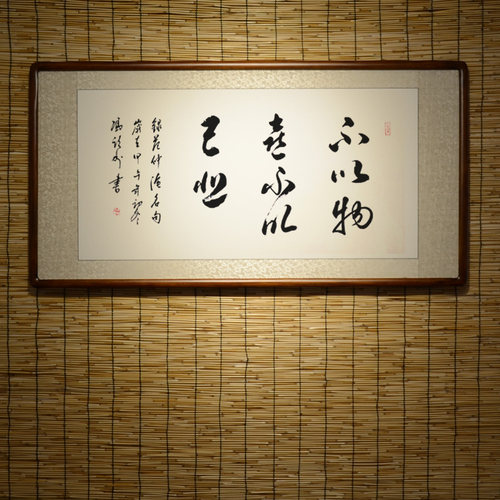 不以物
喜不以
己悲
録范仲淹名句
歲在甲午年初冬
书